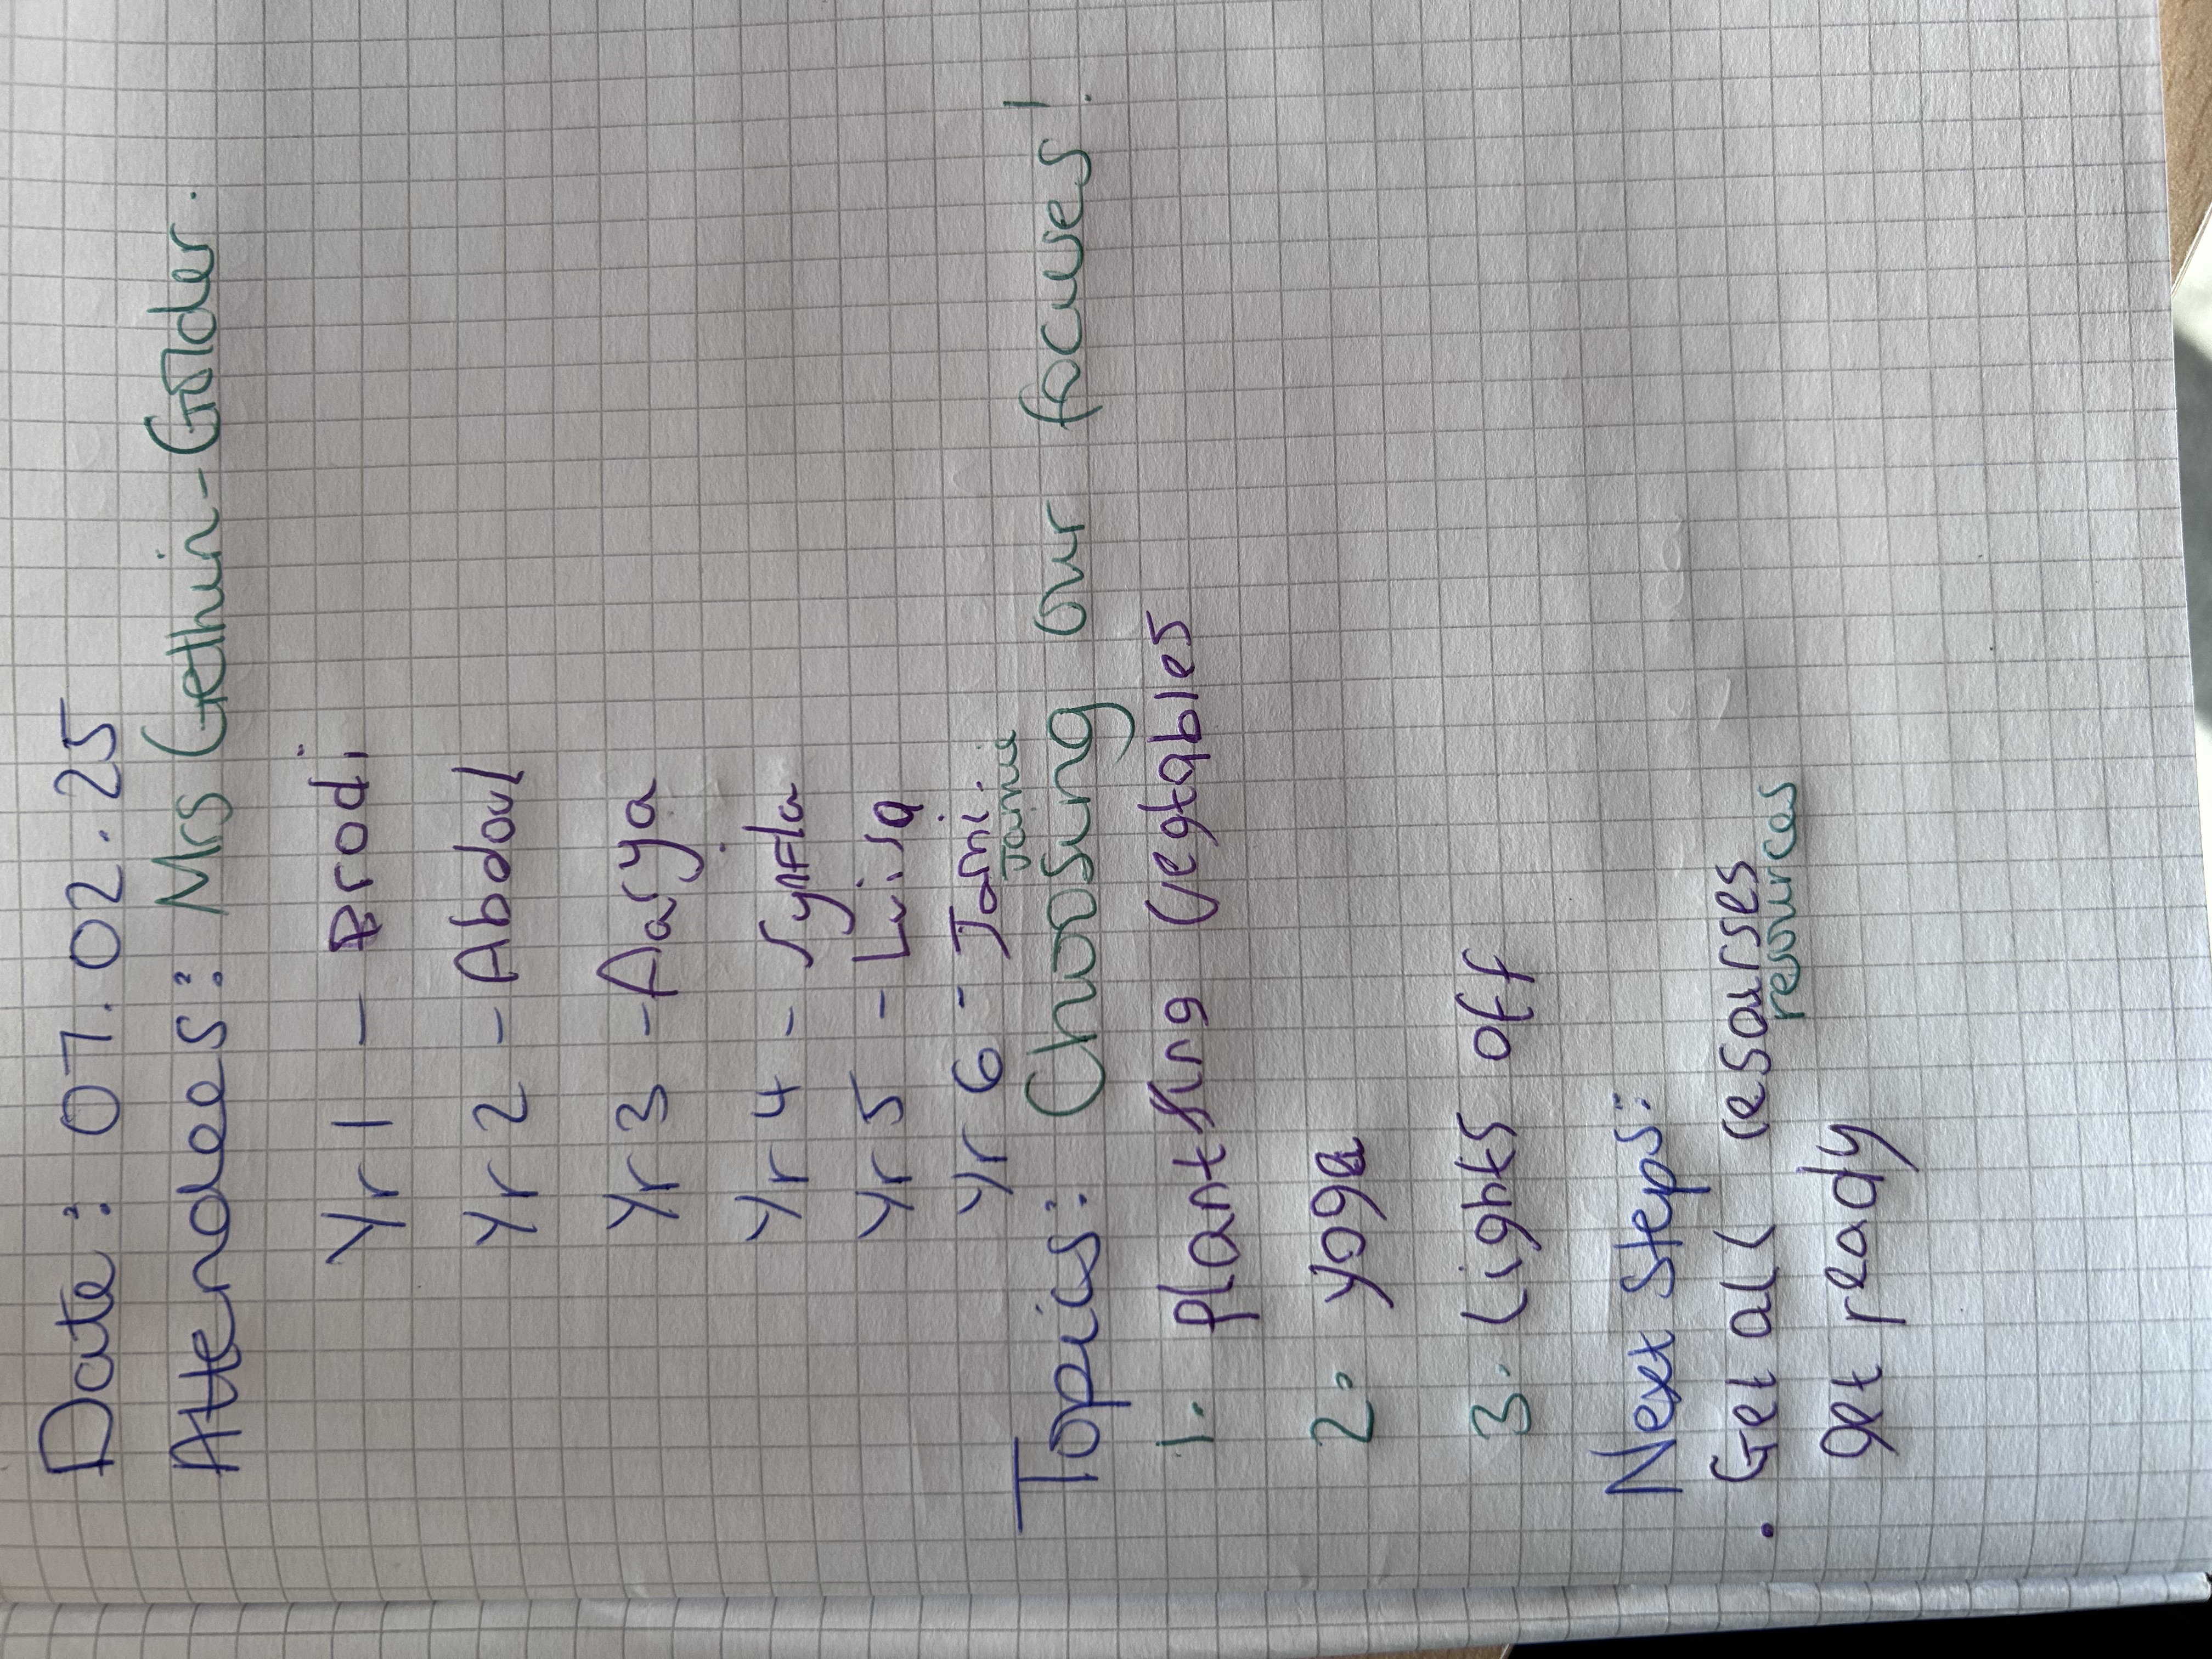 Date: 07.02.25
Attendees: Mrs Gethin-Golder.
Yr 1 - Brodi
Yr 2 - Abdoul
Yr 3 - Aarya
Yr 4 - Synfla
Yr 5 - Luisa
Yr 6 - Jami.
Jaimie
Topics: Choosing our focuses!
1. planting vegtables
2. yoga
3. Lights off
Next Steps:
. Get all resourses
resources
get ready